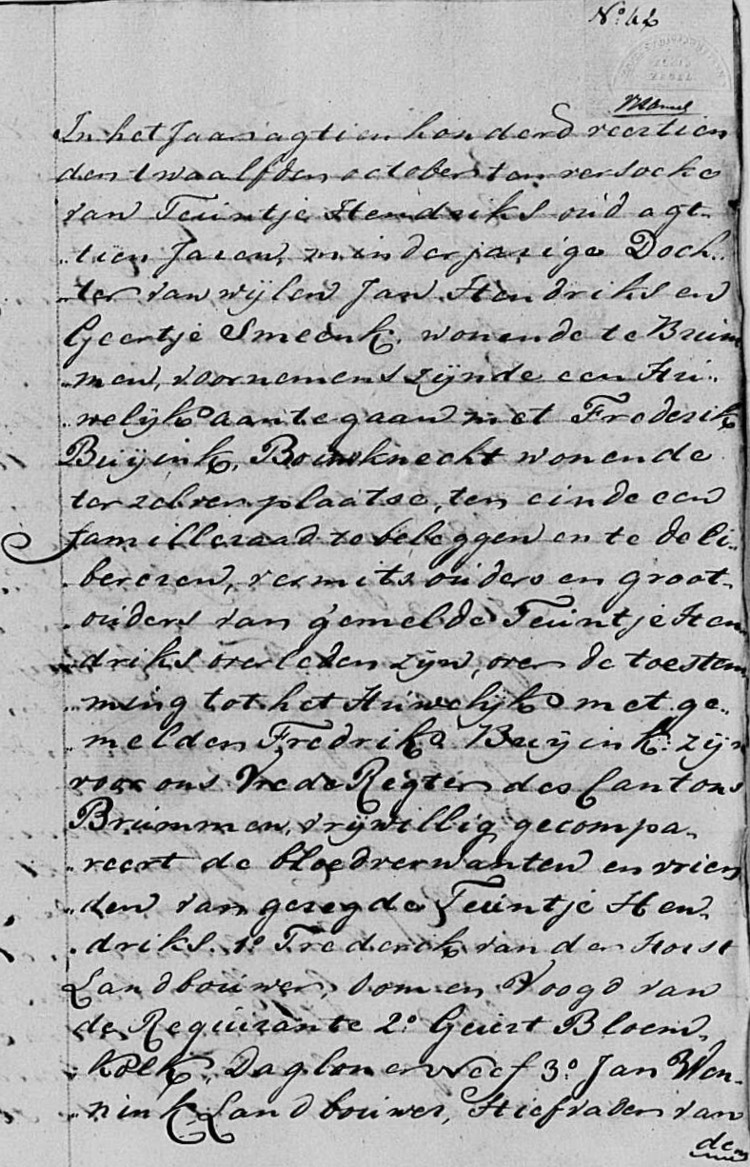 No. 46
In het Jaar agtien honderd veertien
den twaalfden october ten versoeke
van Teuntje Hendriks oud agt-
tien Jaren, minderjarige Doch-
ter van wijlen Jan Hendriks en
Geertje Smeenk, wonende te Brum
men, voornemens zijnde een Hu-
welijk aan te gaan met Frederik
Buijink, Bouwknecht wonende
ter zelver plaatse, ten einde een
familleraad te beleggen en te deli-
bereren, vermits ouders en groot-
ouders van gemelde Teuntje Hen
driks overleden zijn, over de toestem
ming tot het Huwelijk met ge-
melden Fredrik Buijink: zijn
voor ons Vrede Regter des Cantons
Brummen, vrijwillig gecompa-
reert de bloedverwanten en vrien
den van gezegde Teuntje Hen-
driks. 1o Frederik van der Horst
Landbouwer, Oom en Voogd van
de Requirante 2o Geurt Bloem-
kolk, Dagloner Neef 3o Jan Wen-
nink, Landbouwer, Stiefvader van
de